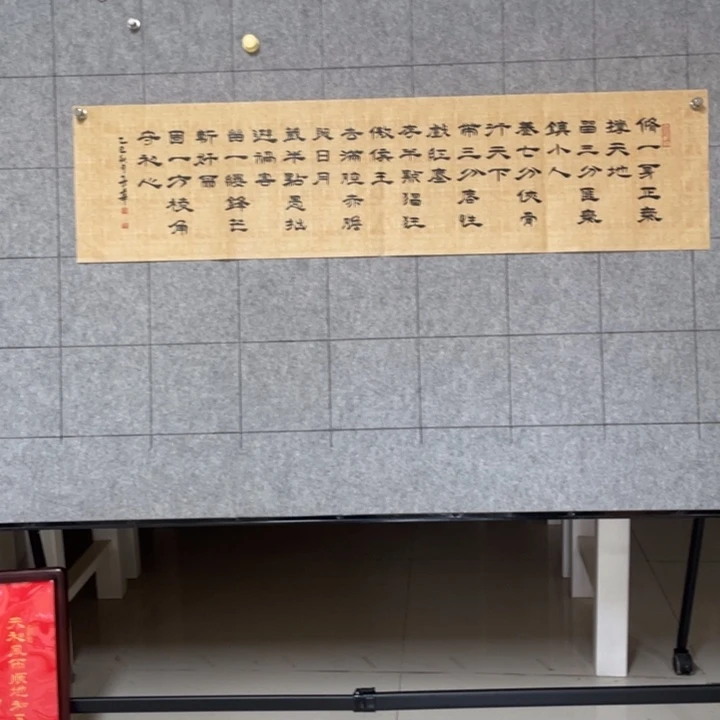 脩一身正氣
撐天地
留三分匪氣
鎮小人
養七分俠骨
行天下
帶三分痞性
戲紅塵
存半點狂
傲侯王
去滿腔赤膽
日月
藏半點愚拙
避禍害
留一縷鋒芒
斬奸
固一方棱角
守初心